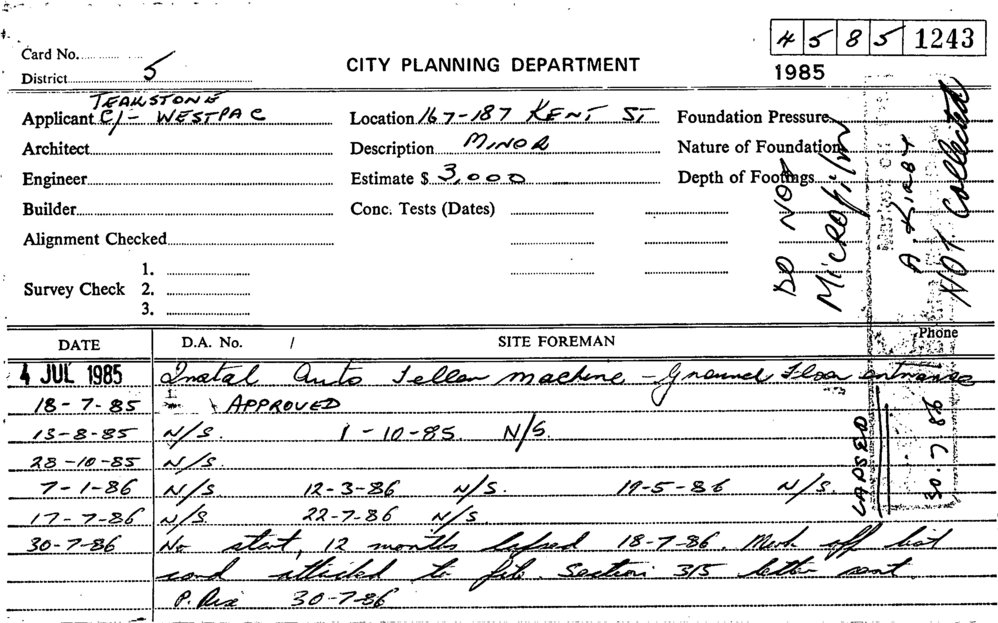 4 5 8 5 1243
Card No.
1985
District 5
CITY PLANNING DEPARTMENT
TEAKSTONE
Applicant C/- WESTPAC
Location 167-187 KENT ST
Foundation Pressure
Architect
Description MINOR
Nature of Foundation
Engineer
Estimate $ 3,000
Depth of Footings
Builder
Conc. Tests (Dates)
Alignment Checked
Survey Check
1.
2.
3.
DO NOT
MICROFILM
A. KIRBY
NOT Collected
DATE
D.A. No. /
SITE FOREMAN
Phone
4 JUL 1985 Instal Auto Teller machine - Ground Floor entrance
18-7-85 APPROVED
13-8-85 N/S. 1-10-85. N/S.
28-10-85 N/S.
7-1-86 N/S. 12-3-86 N/S. 19-5-86 N/S.
17-7-86 N/S. 22-7-86 N/S.
LAPSED
30.7.86
30-7-86 No start, 12 months lapsed 18-7-86. Mark off list
card attached to file. Section 315 letter sent.
30-7-86